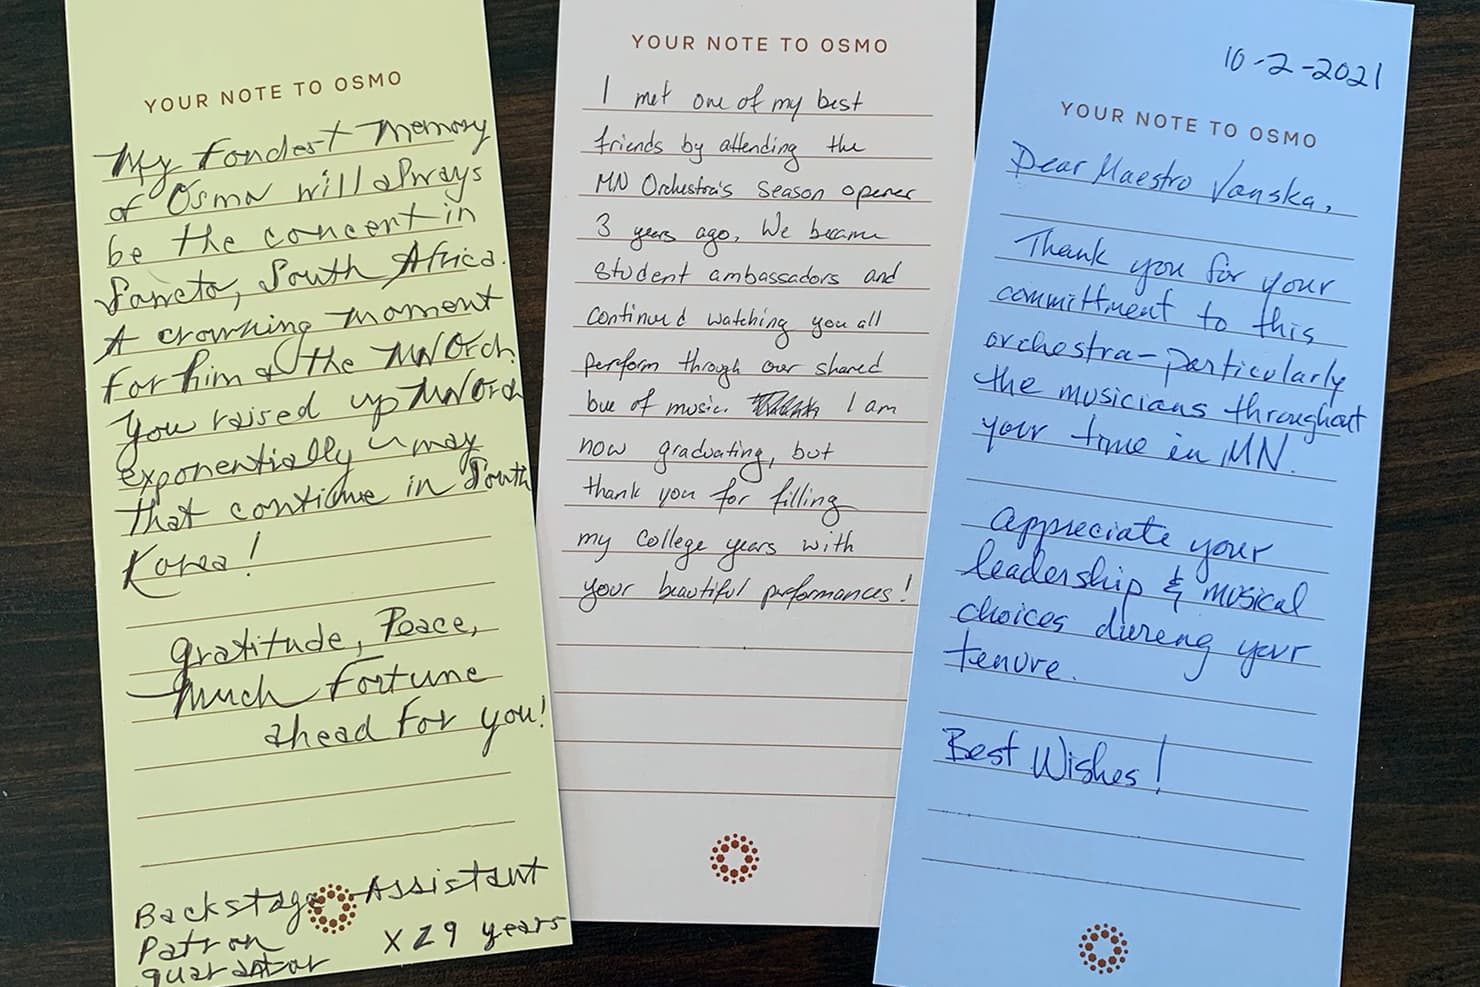 YOUR NOTE TO OSMO
My fondest memory
of Osmo will always
be the concert in
Soweto, South Africa.
A crowning moment
for him & the MN Orch.
You raised up MN Orch
exponentially – may
that continue in South
Korea!
gratitude, Peace,
Much Fortune
ahead for you!
Backstage Assistant
Patron
x 29 years
guarantor
YOUR NOTE TO OSMO
I met one of my best
friends by attending the
MN Orchestra's season opener
3 years ago. We became
student ambassadors and
continued watching you all
perform through our shared
love of music. I am
now graduating, but
thank you for filling
my college years with
your beautiful performances!
10-2-2021
YOUR NOTE TO OSMO
Dear Maestro Vanska,
Thank you for your
committment to this
orchestra–particularly
the musicians throughout
your time in MN.
Appreciate your
leadership & musical
choices during your
tenure.
Best Wishes!